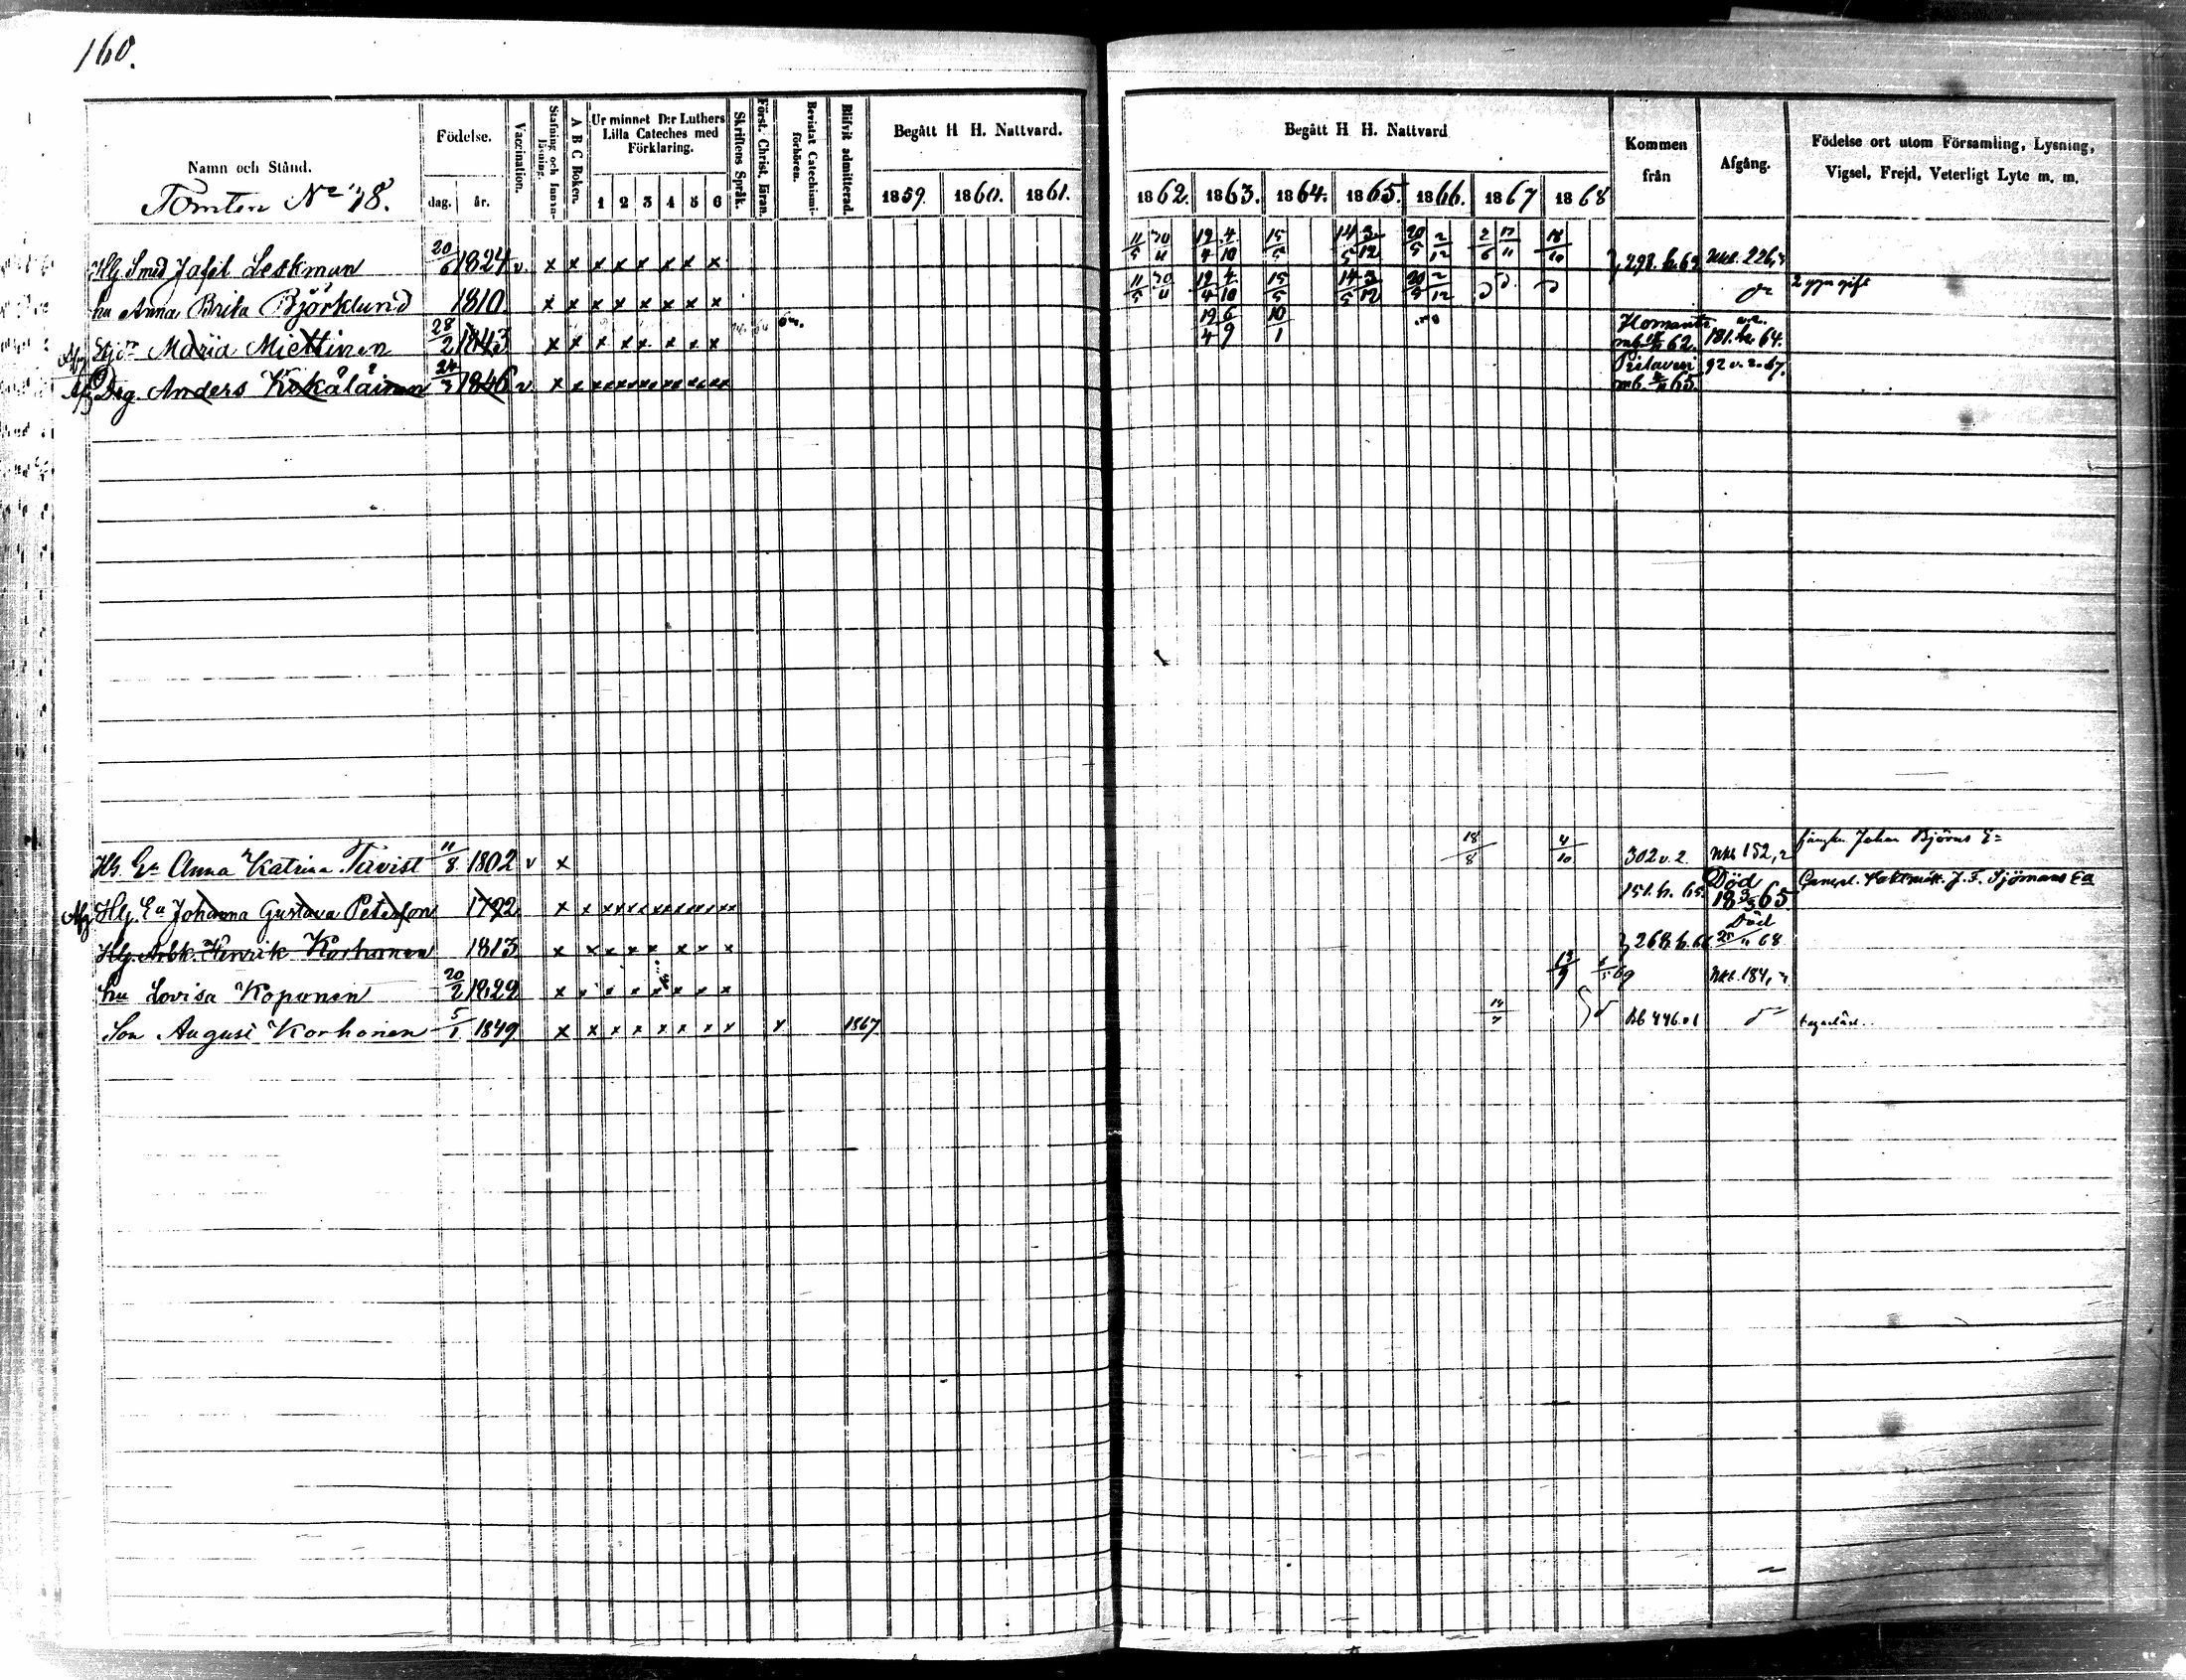 160.
Namn och Stånd.
Tomten No 48.
Födelse.
dag. år.
Vaccination.
Stafning och Innan-läsning.
A B C Boken.
Ur minnet D:r Luthers Lilla Cateches med Förklaring.
1 2 3 4 5 6
Skriftens Språk.
Först. Christ. läran.
Bevistat Catechismi-förhören.
Blifvit admitterad.
Begått H H. Nattvard.
1859. 1860. 1861.
Begått H H. Nattvard
1862. 1863. 1864. 1865. 1866. 1867 1868
Kommen från
Afgång.
Födelse ort utom Församling, Lysning, Vigsel, Frejd, Veterligt Lyte m. m.
Hlg Smed Jafet Leskman 20/6 1824 v. x x x x x x x x 11/5 30/11 19/4 4/10 15/5 14/5 3/12 20/5 2/12 2/6 17/11 18/10 298. h. 62 Nkb. 226,
hu Anna Brita Björklund 1810. x x x x x x x x 11/5 30/11 19/4 4/10 15/5 14/5 3/12 20/5 2/12 2 ggr gift
Maria Miettinen 28/2 1843 x x x x x x x x 19/4 6/9 10/1 Ilomants 62. 181. 64.
Drg. Anders Kokåläinen 24/3 1846 v x x x x x x x x Pielavesi mb. 65. 92 v. 2. 67.
Hs. Ea Anna Katrina Tavist 11/8. 1802 v x 18/8 4/10 302 v. 2. Nkb 152, Johan Björns Ea
Afg Hlg. Ea Johanna Gustava Peterson 1792 x x x x x x x x 151. h. 65. Död 18 65. J. F. Sjömans Ea
Hlg. Arbk. Henrik Korhonen 1813 x x x x x x x x 268. h. Död 25/11 68
hu Lovisa Koponen 20/2 1829 x x x x x x x 69 Nkb. 184,
Son August Korhonen 5/1 1849 x x x x x x x x x 1867 14/7 Bb 446.